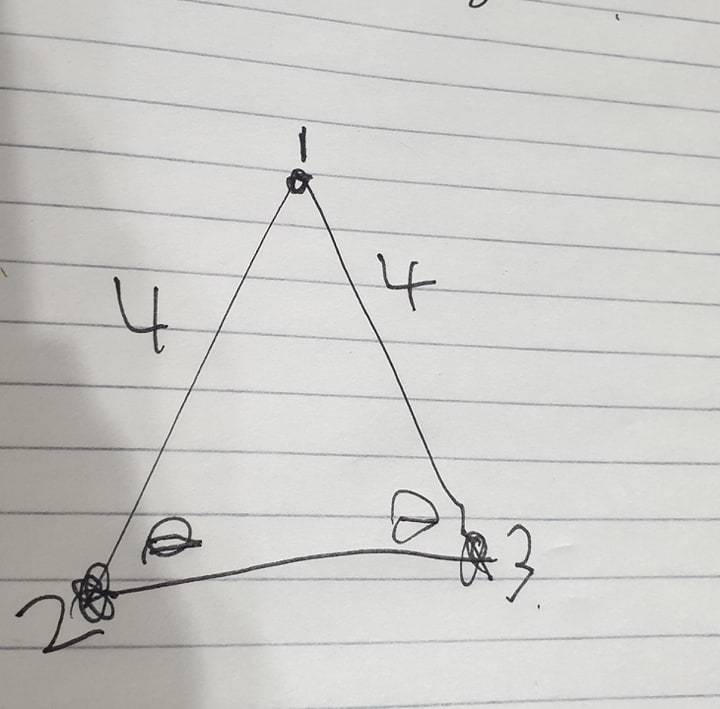 1
4 4
θ θ
2 3.